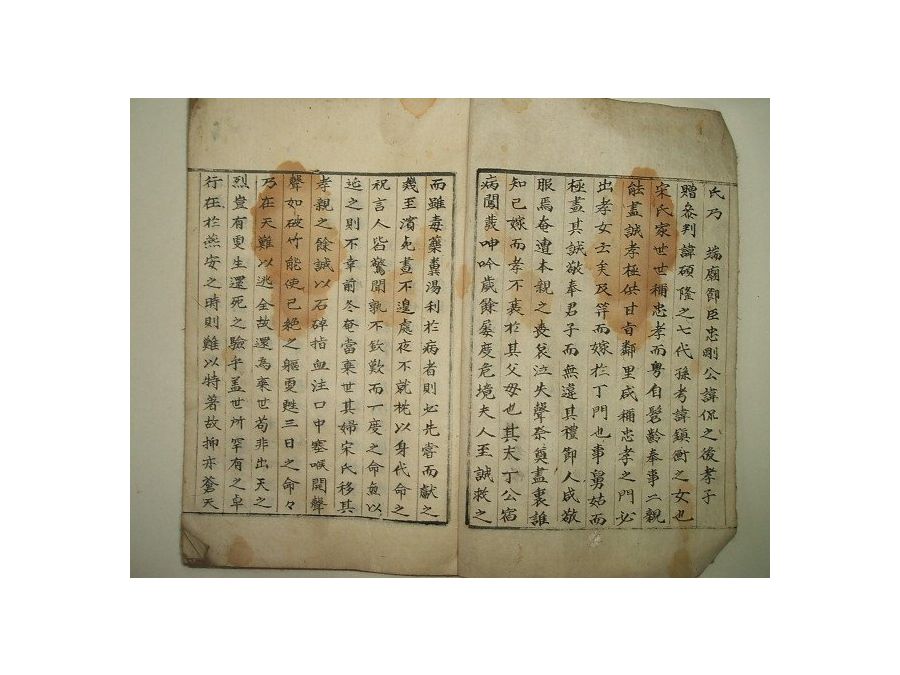 氏乃 端廟御臣忠剛公諱侃之後孝子
贈叅判諱碩隆之七代孫考諱鎭衡之女也
宋氏家世世稱忠孝而粤自髫齡奉事二親
能盡誠孝極供甘旨鄰里咸稱忠孝之門必
出孝女云矣及笄而嫁於丁門也事舅姑而
極盡其誠敬奉君子而無違其禮御人咸敬
服焉奄遭本親之喪哀泣失聲祭奠盡裏誰
知已嫁而孝不衰於其父母也其夫丁公宿
病閱幾呻吟歲餘屢度危境夫人至誠救之
而雖毒藥糞湯利於病者則必先嘗而獻之
幾至濱危晝不遑處夜不就枕以身代命之
祝言人皆驚聞孰不欽歎而一度之命無以
延之則不幸前冬奄當棄世其婦宋氏移其
孝親之餘誠以石碑指血注口中塞喉開聲
聲如破竹能使已絶之軀更甦三日之命々
乃在天難以逃全故還為棄世苟非出天之
烈豈有更生還死之驗乎盖世所罕有之卓
行在於燕安之時則難以特著故抑亦蒼天